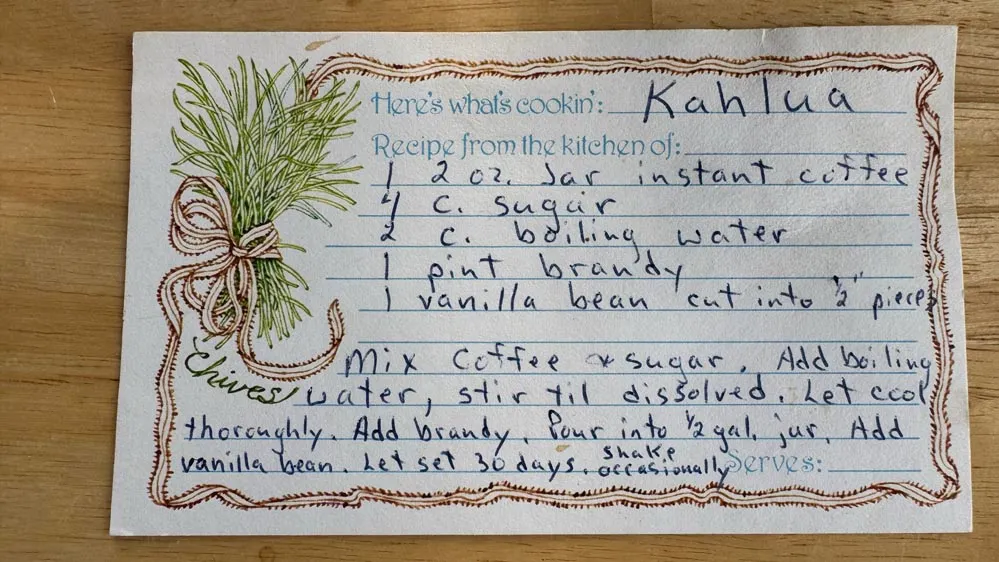 Here's what's cookin': Kahlua
Recipe from the kitchen of:
1 2 oz. Jar instant coffee
4 c. sugar
2 c. boiling water
1 pint brandy
1 vanilla bean cut into ½" pieces
Mix Coffee & sugar. Add boiling
Chives
water, stir til dissolved. Let cool
thoroughly. Add brandy. Pour into ½ gal. jar. Add
vanilla bean. Let set 30 days. shake occasionally Serves: